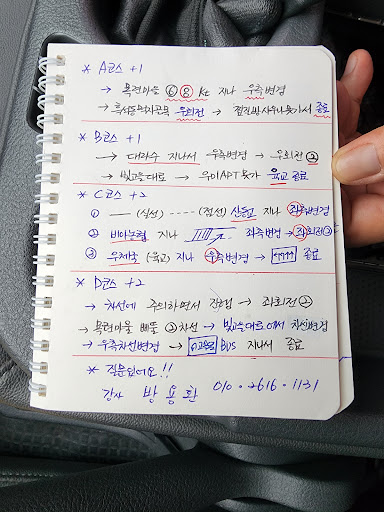 * A코스 +1
→ 목련마을 ⑥ ⑧ Kt 지나 우측변경
→ 우회전 → 들어가서 종료
* B코스 +1
→ 대라수 지나서 우측변경 → 우회전 ②
→ 빛고을대로 → 우미APT 육교 종료
* C코스 +2
① —(실선) ----(점선) 산월교 지나 좌측변경
② 비아농협 지나 좌측변경 → 좌회전 ②
③ 우체국 (육교) 지나 우측변경 → 종료
* D코스 +2
→ 차선에 주의하면서 진행 → 좌회전 ②
→ 목련마을 ③차선 → 빛고을대로에서 차선변경
→ 우측차선변경 → BUS 지나서 종료
* 질문있어요!!
강사 방용환 010·2616·1131